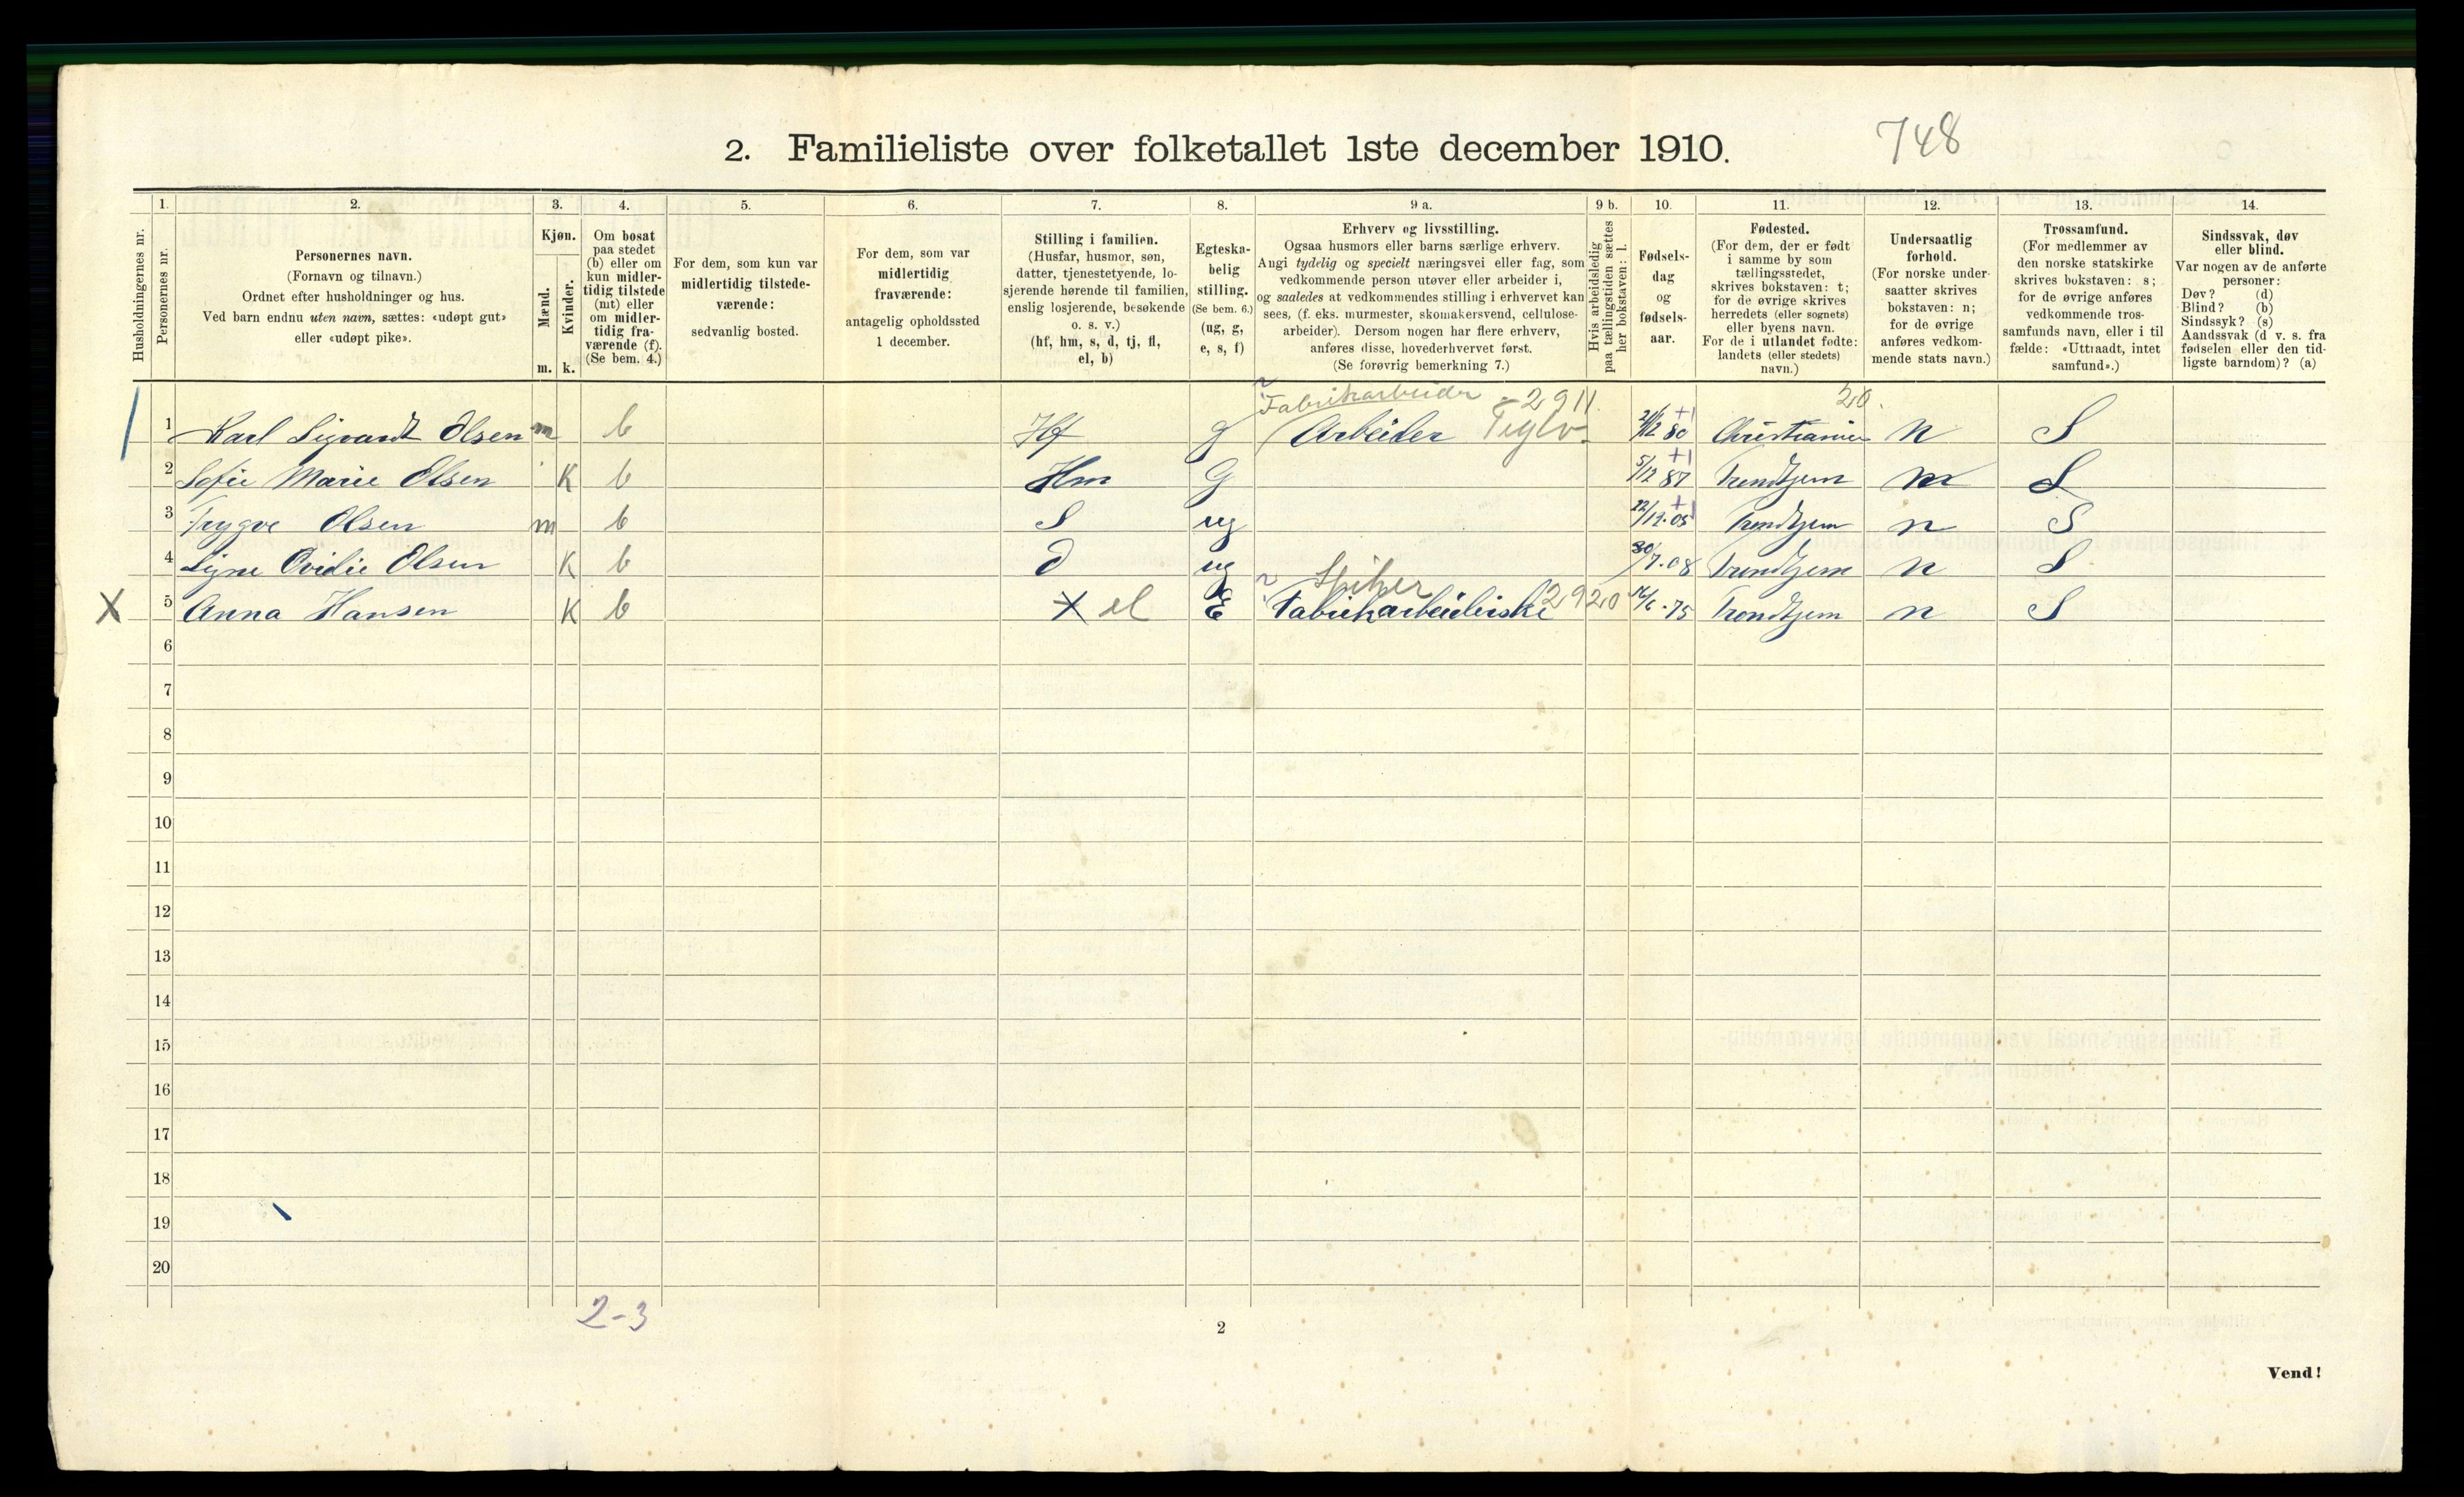 2. Familieliste over folketallet 1ste december 1910.
748
1. 2. 3. 4. 5. 6. 7. 8. 9 a. 9 b. 10. 11. 12. 13. 14.
Husholdningernes nr.
Personernes nr.
Personernes navn.
(Fornavn og tilnavn.)
Ordnet efter husholdninger og hus.
Ved barn endnu uten navn, sættes: «udøpt gut»
eller «udøpt pike».
Kjøn.
Mænd.
Kvinder.
m. k.
Om bosat
paa stedet
(b) eller om
kun midler-
tidig tilstede
(mt) eller
om midler-
tidig fra-
værende (f).
(Se bem. 4.)
For dem, som kun var
midlertidig tilstede-
værende:
sedvanlig bosted.
For dem, som var
midlertidig
fraværende:
antagelig opholdssted
1 december.
Stilling i familien.
(Husfar, husmor, søn,
datter, tjenestetyende, lo-
sjerende hørende til familien,
enslig losjerende, besøkende
o. s. v.)
(hf, hm, s, d, tj, fl,
el, b)
Egteska-
belig
stilling.
(Se bem. 6.)
(ug, g,
e, s, f)
Erhverv og livsstilling.
Ogsaa husmors eller barns særlige erhverv.
Angi tydelig og specielt næringsvei eller fag, som
vedkommende person utøver eller arbeider i,
og saaledes at vedkommendes stilling i erhvervet kan
sees, (f. eks. murmester, skomakersvend, cellulose-
arbeider). Dersom nogen har flere erhverv,
anføres disse, hovederhvervet først.
(Se forøvrig bemerkning 7.)
Hvis arbeidsledig
paa tællingstiden sættes
her bokstaven: l.
Fødsels-
dag
og
fødsels-
aar.
Fødested.
(For dem, der er født
i samme by som
tællingsstedet,
skrives bokstaven: t;
for de øvrige skrives
herredets (eller sognets)
eller byens navn.
For de i utlandet fødte:
landets (eller stedets)
navn.)
Undersaatlig
forhold.
(For norske under-
saatter skrives
bokstaven: n;
for de øvrige
anføres vedkom-
mende stats navn.)
Trossamfund.
(For medlemmer av
den norske statskirke
skrives bokstaven: s;
for de øvrige anføres
vedkommende tros-
samfunds navn, eller i til
fælde: «Uttraadt, intet
samfund».)
Sindssvak, døv
eller blind.
Var nogen av de anførte
personer:
Døv? (d)
Blind? (b)
Sindssyk? (s)
Aandssvak (d v. s. fra
fødselen eller den tid-
ligste barndom)? (a)
Fabrikarbeider 2911. 20.
1 Karl Sigvardt Olsen m b Hf g Arbeider Teglv. 80 +1 Christiania n S
2 Sofie Marie Olsen K b Hm G 5/12 87 +1 Trondhjem n S
3 Trygve Olsen m b S ug 22/12.05 +1 Trondhjem n S
4 Signe Ovidie Olsen K b d ug 30/7.08 Trondhjem n S
Spiker
X 5 Anna Hansen K b X el E Fabrikarbeiderske 2920 75 Trondhjem n S
6
7
8
9
10
11
12
13
14
15
16
17
18
19
20
2-3
2
Vend!